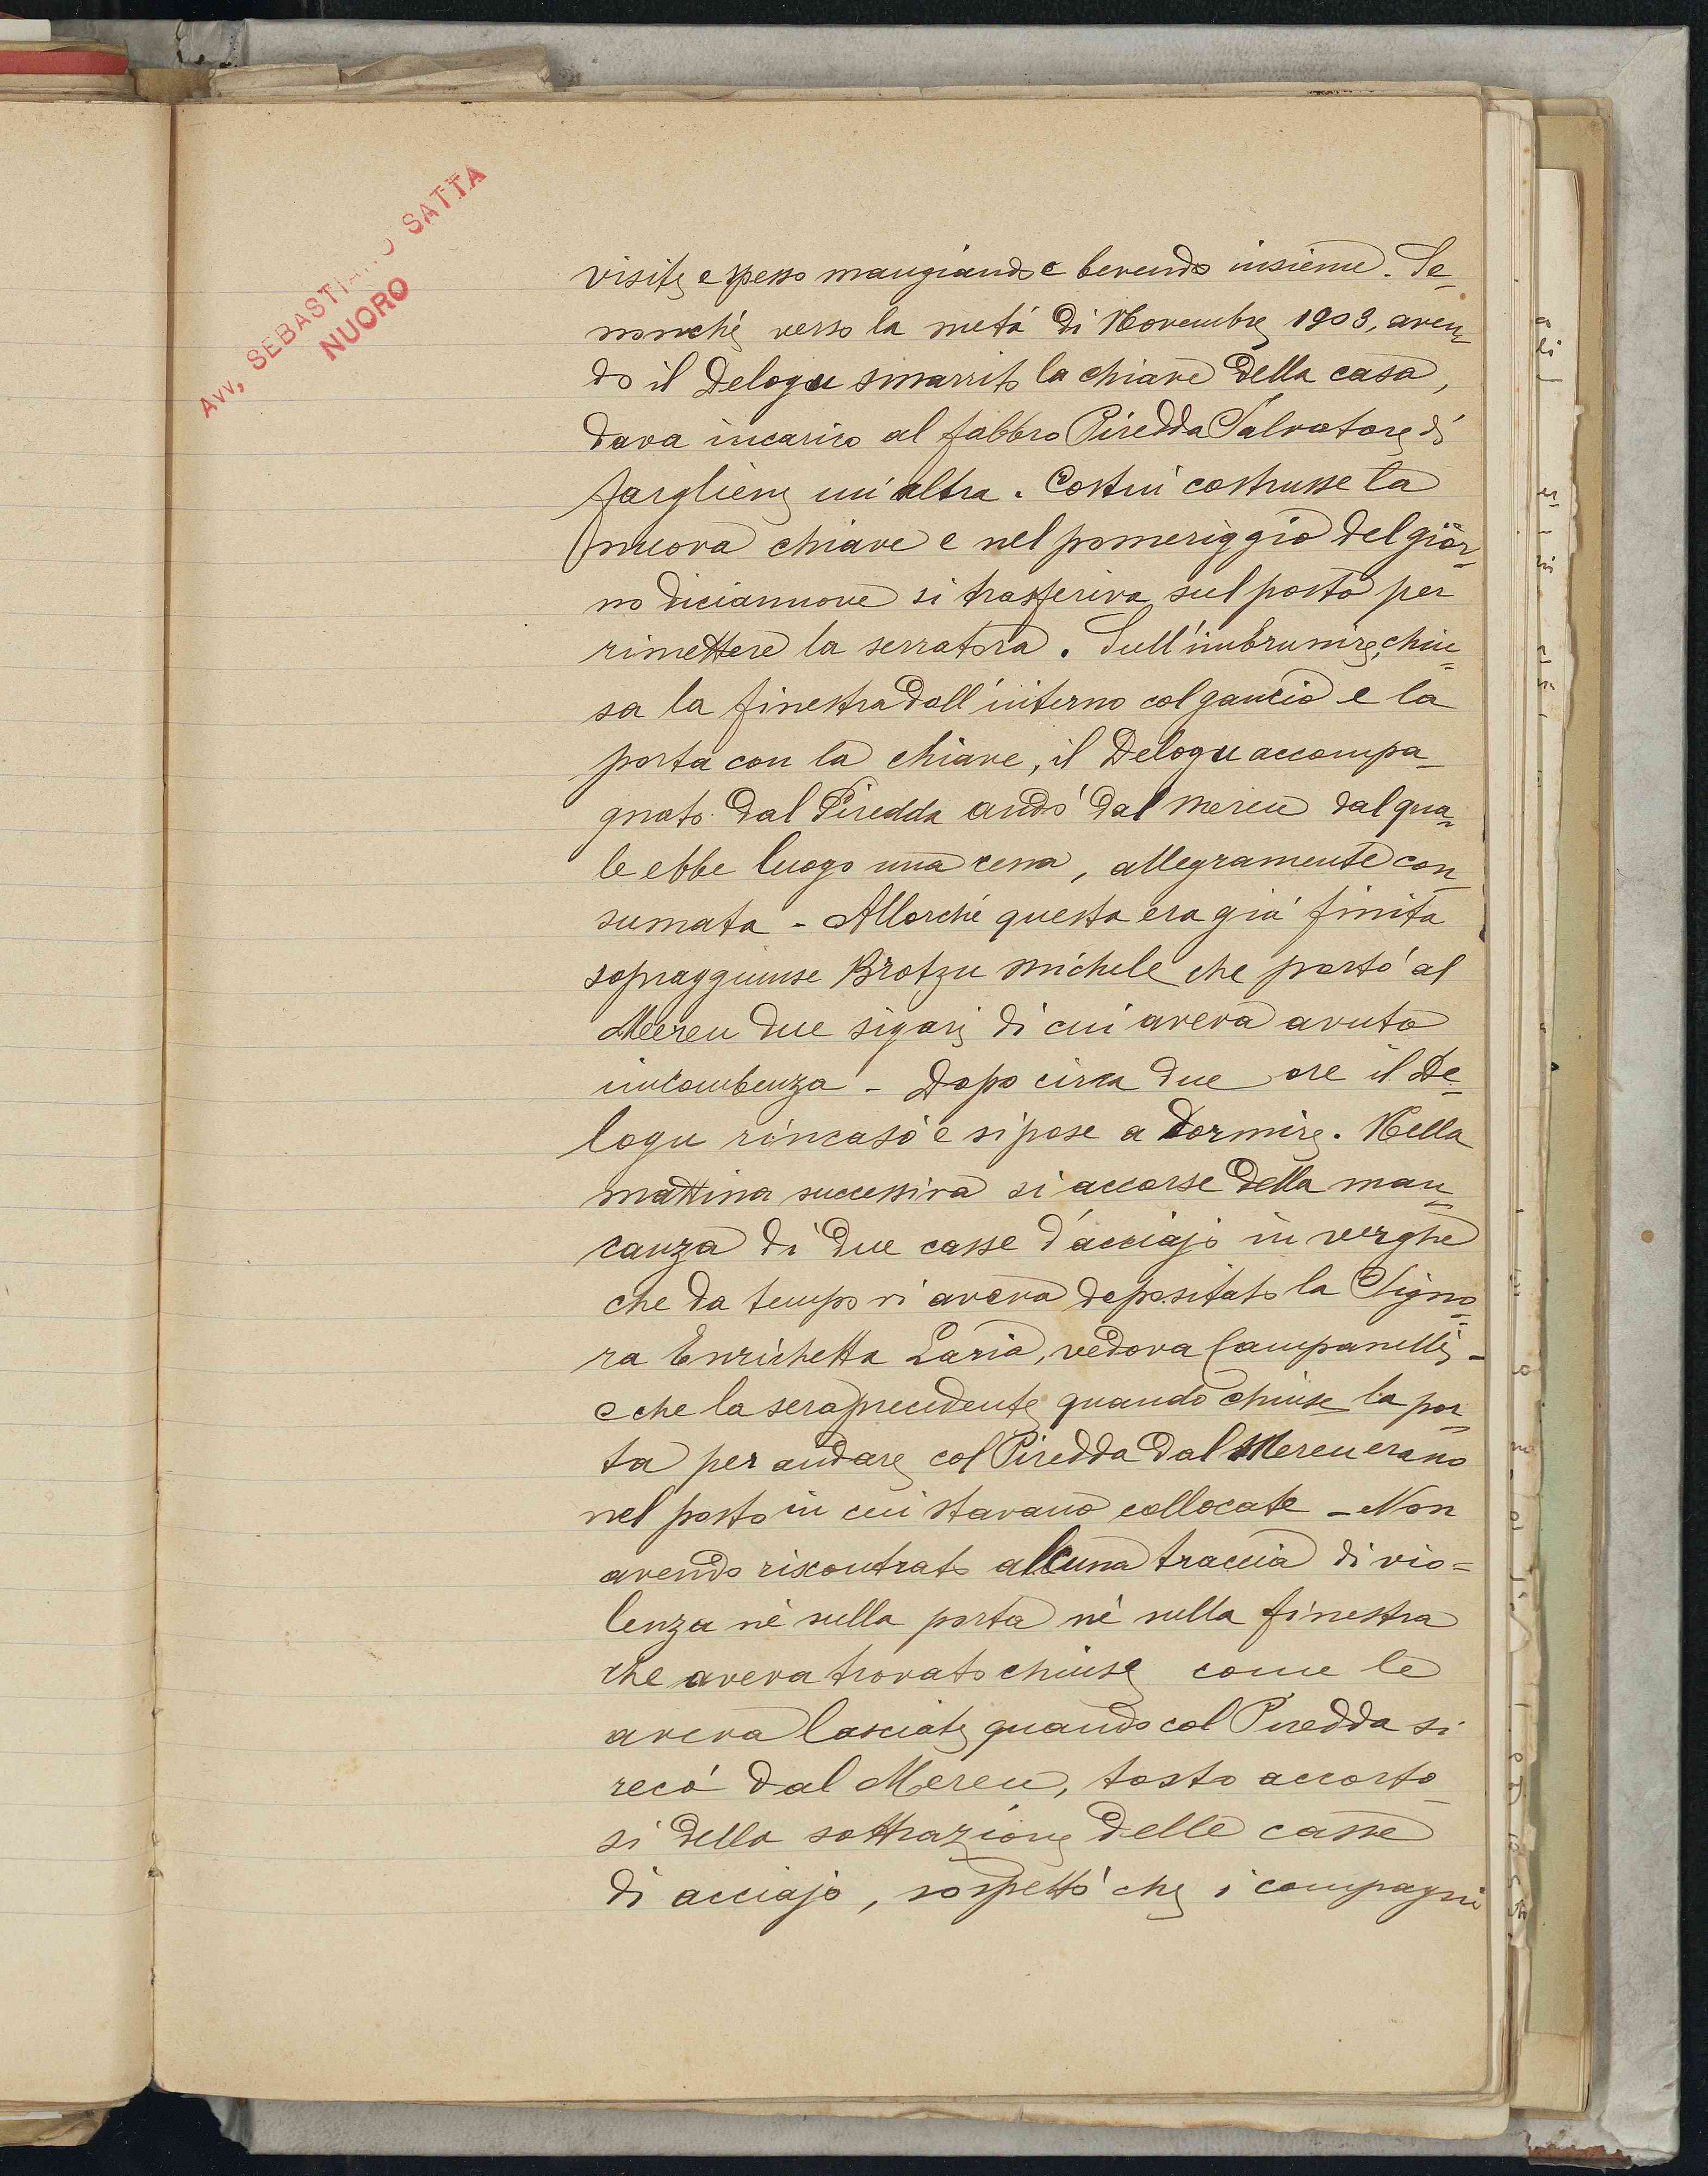 Avv. SEBASTIANO SATTA
NUORO
visite e spesso mangiando e bevendo insieme. Se-
nonché verso la metá di Novembre 1903, aven-
do il Delogu smarrito la chiave della casa,
dava incarico al fabbro Piredda Salvatore di
fargliene un'altra. Costui costrusse la
nuova chiave e nel pomeriggio del gior-
no diciannove si trasferiva sul posto per
rimettere la serratura. Sull'imbrunire, chiu-
sa la finestra dall'interno col gancio e la
porta con la chiave, il Delogu accompa-
gnato dal Piredda andó dal Mereu dal qua-
le ebbe luogo una cena, allegramente con-
sumata - Allorché questa era giá finita
sopraggiunse Brotzu Michele che portó al
Mereu due sigari di cui aveva avuto
incombenza - Dopo circa due ore il De-
logu rincasó e si pose a dormire. Nella
mattina successiva si accorse della man-
canza di due casse d'acciajo in verghe
che da tempo vi aveva depositato la Signo-
ra Enrichetta Laria, vedova Campanelli -
e che la sera precedente quando chiuse la por-
ta per andare col Piredda dal Mereu erano
nel posto in cui stavano collocate - Non
avendo riscontrato alcuna traccia di vio=
lenza nè sulla porta nè sulla finestra
che aveva trovato chiuse come le
aveva lasciate quando col Piredda si
recó dal Mereu, tosto accorto-
si della sottrazione delle casse
di acciajo, sospettó che i compagni